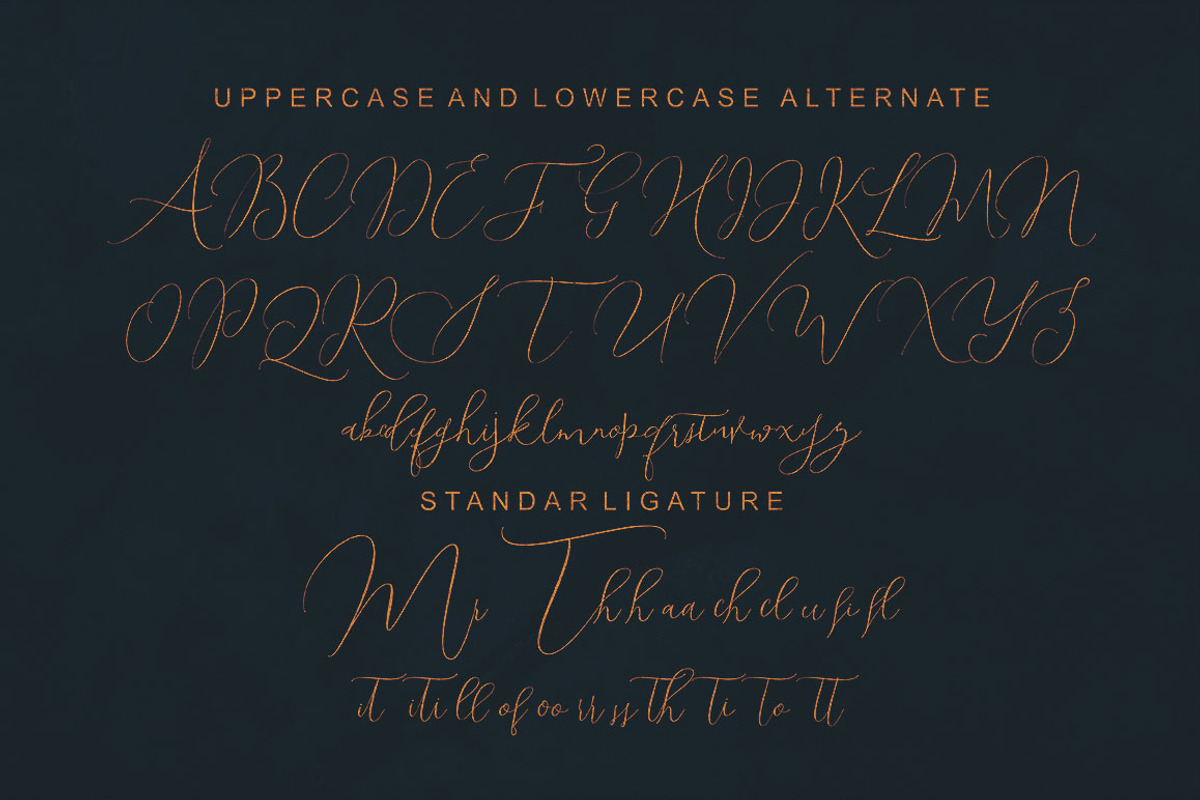 UPPERCASE AND LOWERCASE ALTERNATE
ABCDEFGHIJKLMN
OPQRSTUVWXYZ
abcdefghijklmnopqrstuvwxyz
STANDAR LIGATURE
Mr Th h aa ch cl u fi fl
it iti ll of oo rr ss th ti to tt